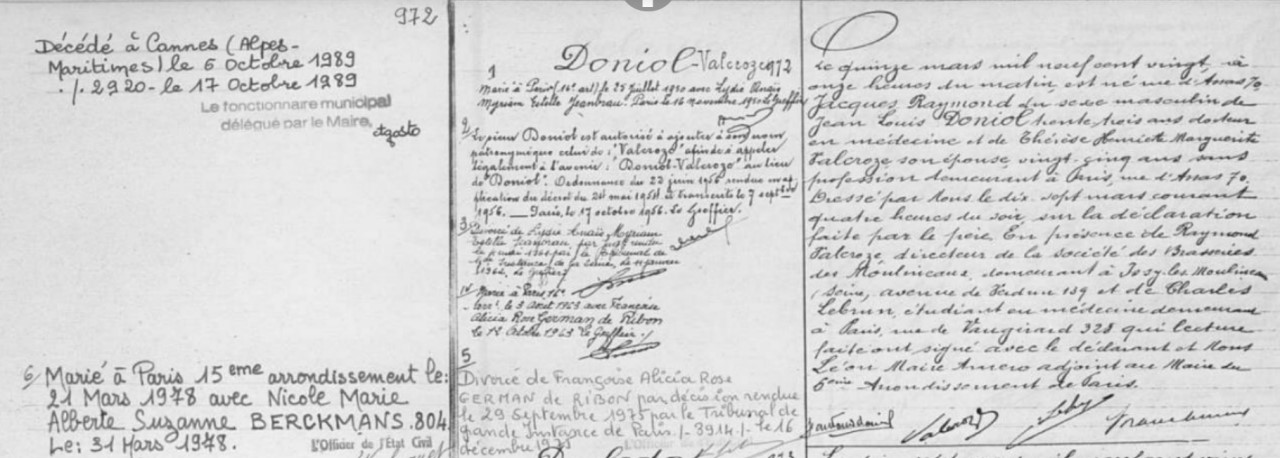 972
Décédé à Cannes (Alpes-
Maritimes) le 6 Octobre 1989
./. 2920 - le 17 Octobre 1989
Le fonctionnaire municipal
délégué par le Maire,
6/ Marié à Paris 15eme arrondissement le:
21 Mars 1978 avec Nicole Marie
Alberte Suzanne BERCKMANS. 804
Le: 31 Mars 1978.
L'Officier de l'Etat Civil
Doniol-Valcroze 972
1
Marié à Paris (16e arrt) le 25 juillet 1950 avec Lydie Anaïs
Myriam Estelle Paris le 16 novembre 1950 Le Greffier
2
Doniol est autorisé à ajouter à son nom
patronymique celui de: "Valcroze" afin de s'appeler
légalement à l'avenir: "Doniol-Valcroze" au lieu
de "Doniol". Ordonnance du 22 juin 1956
du décret du 1954 et transcrite le 7 septbre
1956. — Paris, le 17 octobre 1956. Le Greffier.
3
Divorcé de Lydie Anaïs Myriam
Estelle
1964, Le Greffier
4
Marié à Paris, 16e
arrt le 3 Août 1963 avec Françoise
Alicia Rose German de Ribon
le 1963 Le Greffier./
5
Divorcé de Françoise Alicia Rose
GERMAN de RIBON par décision rendue
le 29 Septembre 1975 par le Tribunal de
Grande Instance de Paris./- 8914./- le 16
décembre 1975
Le quinze mars mil neuf cent vingt, à
onze heures du matin, est né rue d'Assas 70,
Jacques, Raymond du sexe masculin de
Jean Louis DONIOL trente trois ans docteur
en médecine et de Thérèse Henriette Marguerite
Valcroze son épouse vingt-cinq ans sans
profession demeurant à Paris, rue d'Assas 70.
Dressé par Nous le dix-sept mars courant
quatre heures du soir, sur la déclaration
faite par le père. En présence de Raymond
Valcroze, directeur de la société des Brasseries
des Moulineaux, demeurant à Issy-les-Moulineaux
(Seine), avenue de Verdun 139 et de Charles
Lebrun, étudiant en médecine demeurant
à Paris, rue de Vaugirard 328 qui lecture
faite ont signé avec le déclarant et Nous
Léon Marie adjoint au Maire du
6eme Arrondissement de Paris.
Valcroze